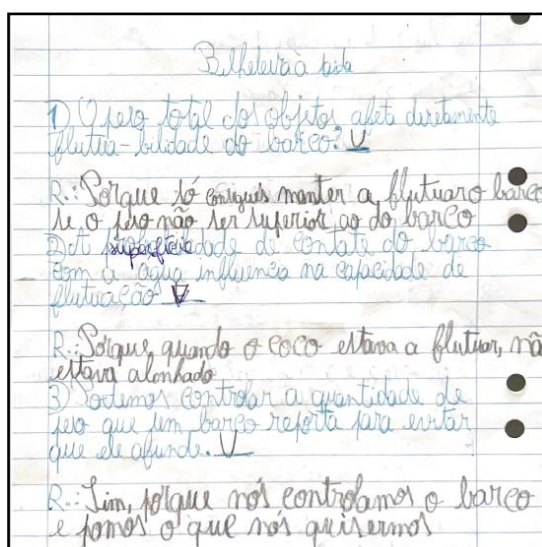 Bilhete à saída
1) O peso total dos objetos afeta diretamente
flutua-bilidade do barco? V
R.: Porque só consigues manter a flutuar o barco
se o peso não ser superior ao do barco
2) A superfície de contate do barco
com a água influencia na capacidade de
flutuação V
R.: Porque, quando o coco estava a flutuar, nã
estava alonhado
3) Podemos controlar a quantidade de
peso que um barco reporta para evitar
que ele afunde. V
R.: Sim, porque nós controlamos o barco
e pomos o que nós quisermos